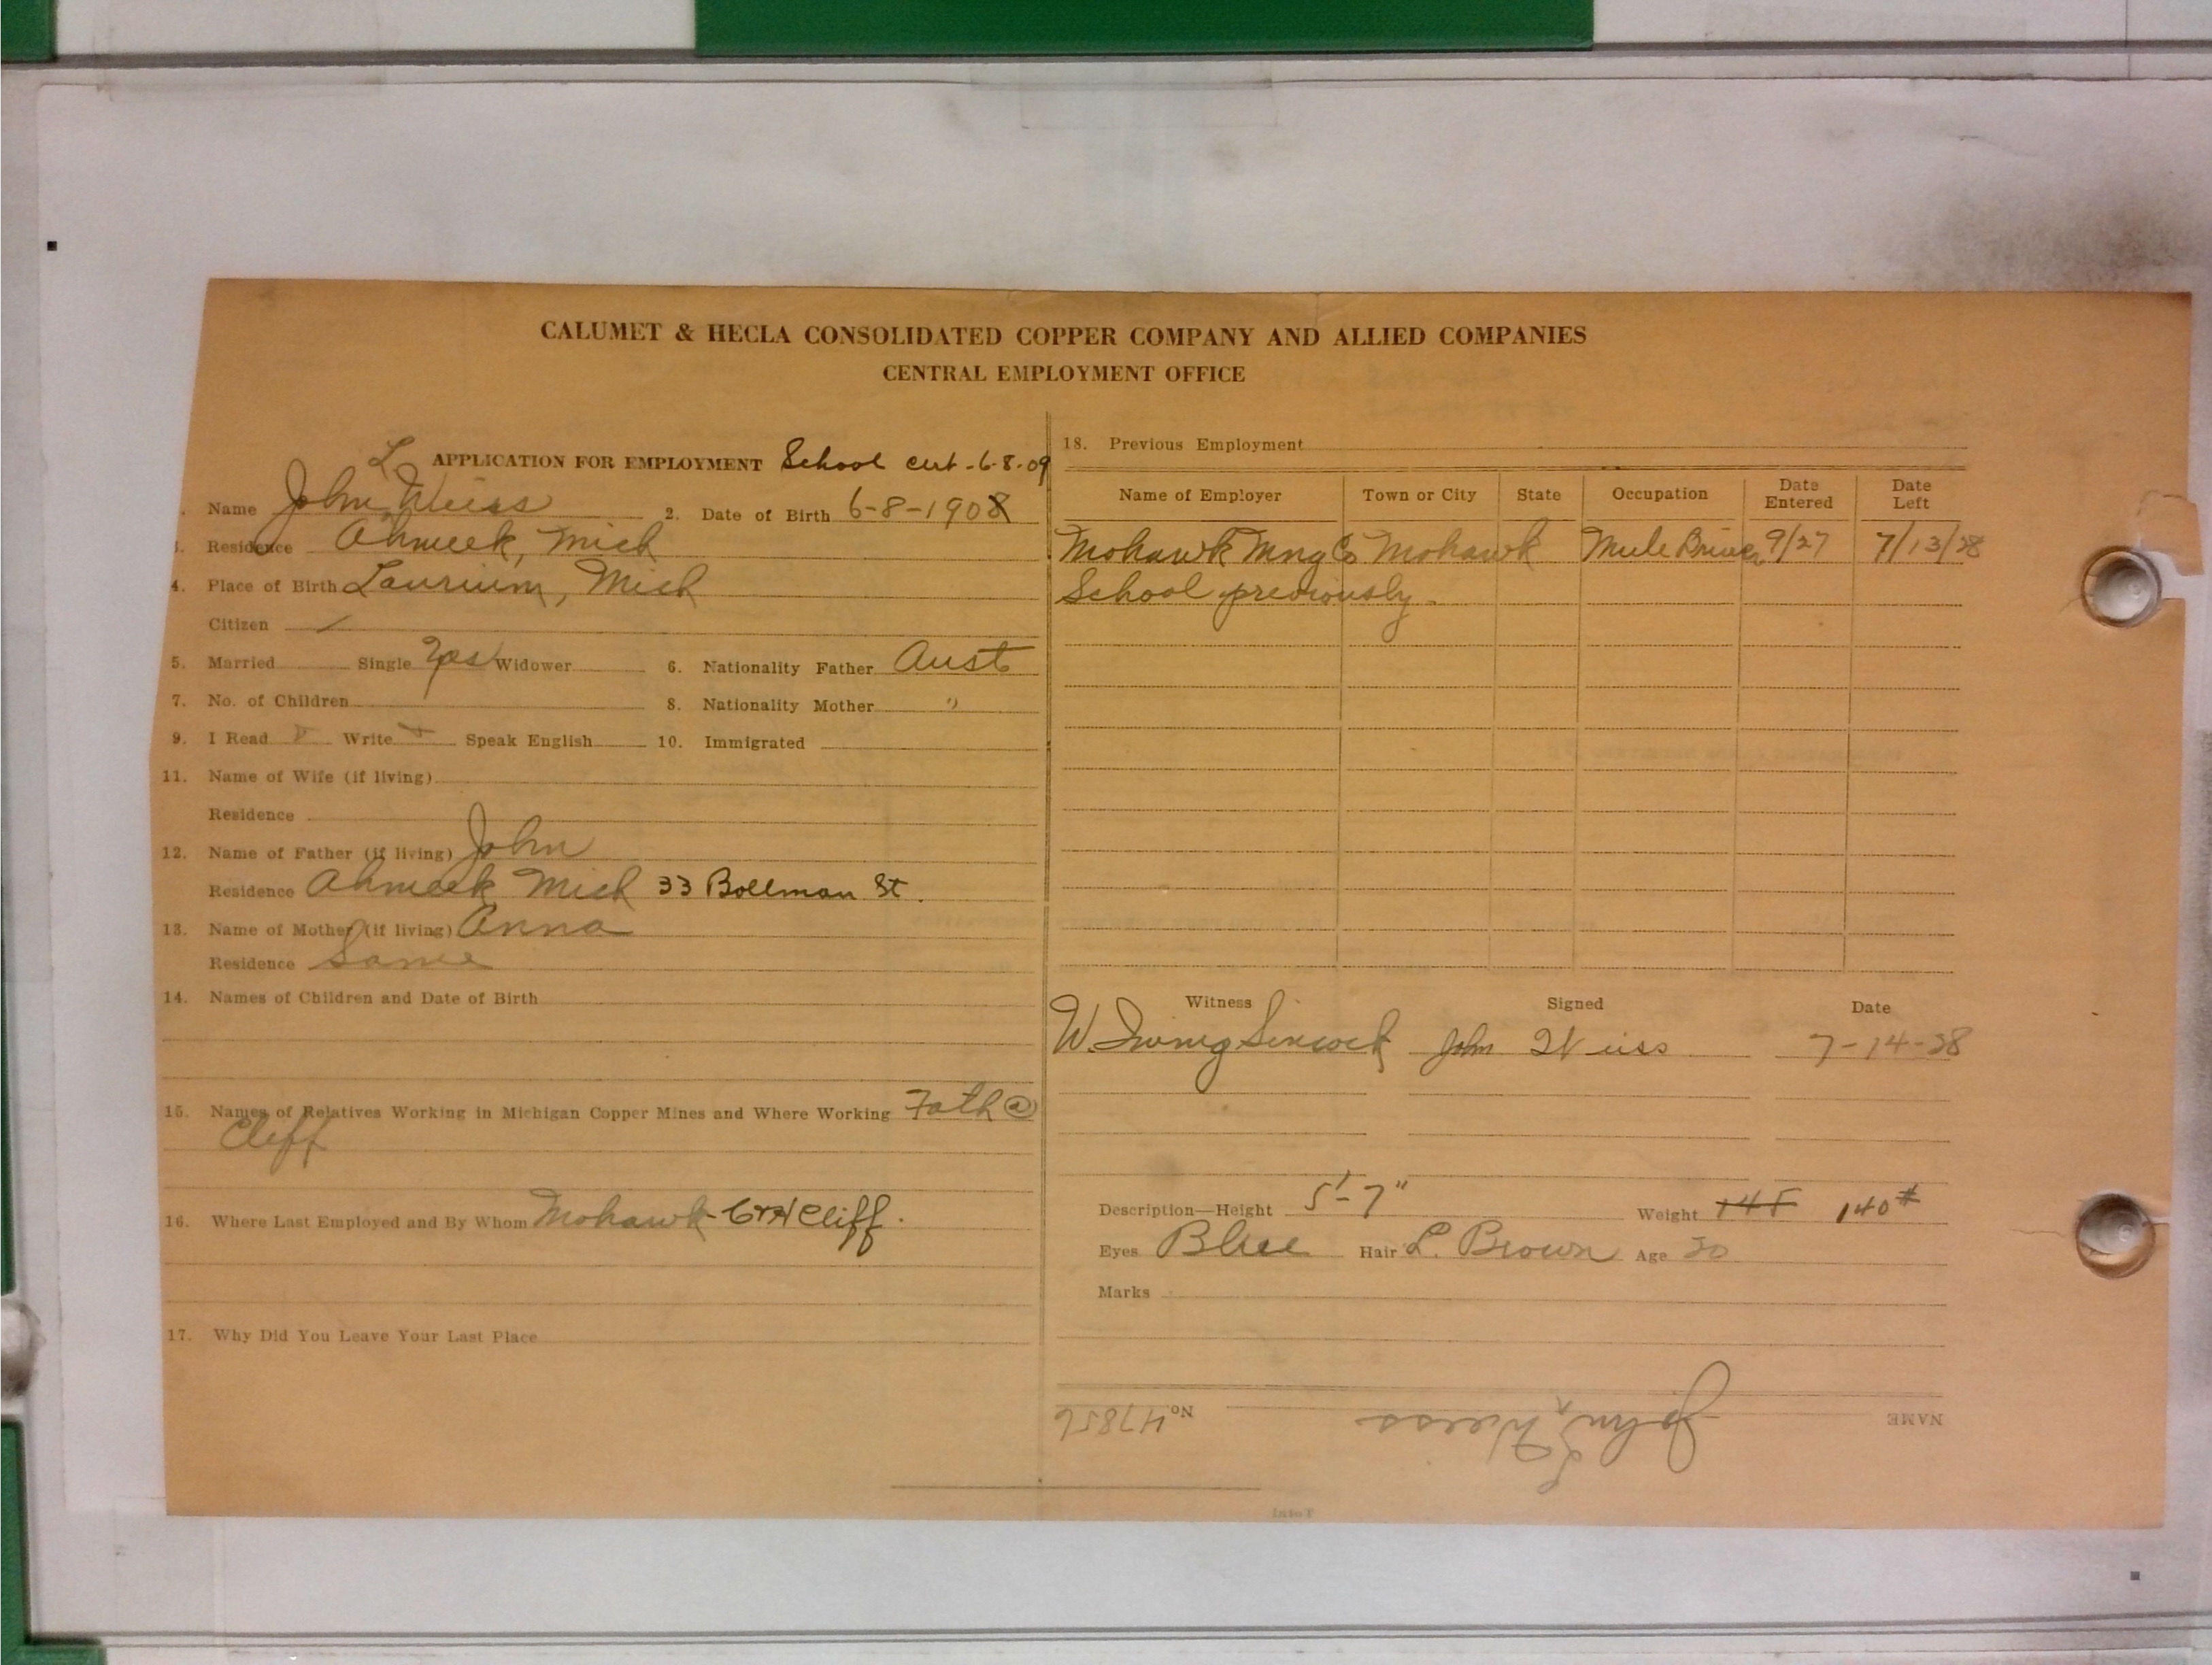 CALUMET & HECLA CONSOLIDATED COPPER COMPANY AND ALLIED COMPANIES
CENTRAL EMPLOYMENT OFFICE
APPLICATION FOR EMPLOYMENT School cert - 6-8-09
Name John L. Weiss 2. Date of Birth 6-8-1908
Residence Ahmeek, Mich
4. Place of Birth Laurium, Mich
Citizen /
5. Married Single Yes Widower 6. Nationality Father Aust
7. No. of Children 8. Nationality Mother "
9. I Read Write Speak English 10. Immigrated
11. Name of Wife (if living)
Residence
12. Name of Father (if living) John
Residence Ahmeek Mich 33 Bollman St.
13. Name of Mother (if living) Anna
Residence Same
14. Names of Children and Date of Birth
15. Names of Relatives Working in Michigan Copper Mines and Where Working Fath @
Cliff
16. Where Last Employed and By Whom Mohawk - C&H Cliff.
17. Why Did You Leave Your Last Place
18. Previous Employment
Name of Employer Town or City State Occupation Date Entered Date Left
Mohawk Mng Co Mohawk Mule Driver 9/27 7/13/28
School previously.
Witness Signed Date
W. Irving Sincock John Weiss 7-14-28
Description—Height 5'-7" Weight 145 140#
Eyes Blue Hair L. Brown Age 20
Marks
NAME John L. Weiss No. 47856
Total